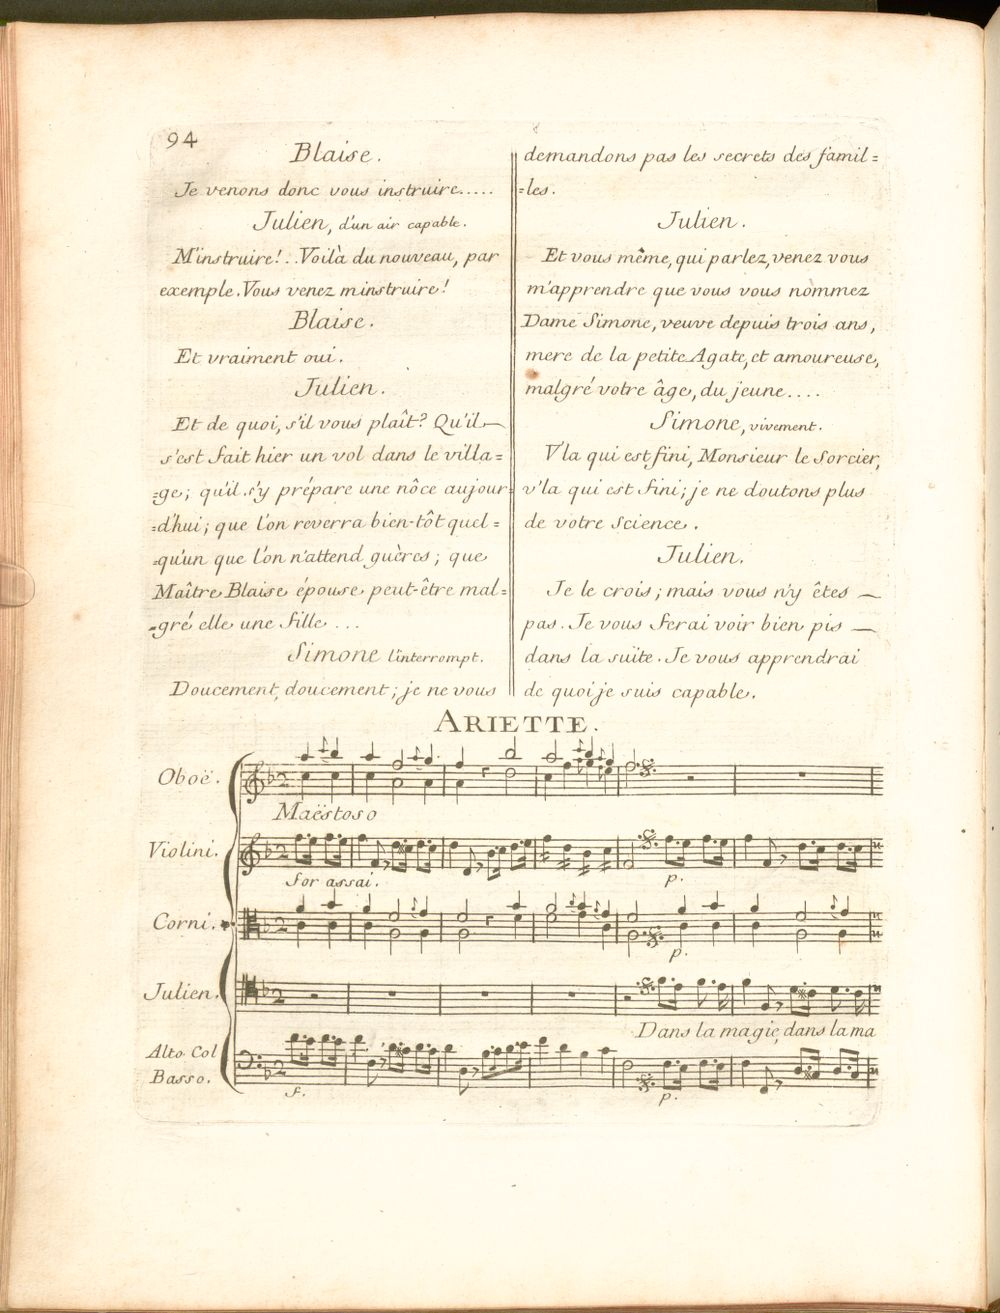 94
Blaise.
Je venons donc vous instruire.....
Julien, d'un air capable.
M'instruire!..Voilà du nouveau, par
exemple. Vous venez m'instruire!
Blaise.
Et vraiment oui.
Julien.
Et de quoi, s'il vous plaît? Qu'il
s'est fait hier un vol dans le villa=
=ge; qu'il s'y prépare une nôce aujour=
=d'hui; que l'on reverra bien-tôt quel=
=qu'un que l'on n'attend guères; que
Maître Blaise épouse peut-être mal=
=gré elle une fille ...
Simone l'interrompt.
Doucement, doucement; je ne vous
demandons pas les secrets des famil=
=les.
Julien.
Et vous même, qui parlez, venez vous
m'apprendre que vous vous nommez
Dame Simone, veuve depuis trois ans,
mere de la petite Agate, et amoureuse,
malgré votre âge, du jeune....
Simone, vivement.
V'la qui est fini, Monsieur le Sorcier,
v'la qui est fini; je ne doutons plus
de votre Science.
Julien.
Je le crois; mais vous n'y êtes
pas. Je vous ferai voir bien pis
dans la suite. Je vous apprendrai
de quoi je suis capable.
ARIETTE.
Oboë.
Maëstoso
Violini.
for assai.
p.
Corni.
p.
Julien.
Dans la magie, dans la ma
Alto Col
Basso.
f.
p.